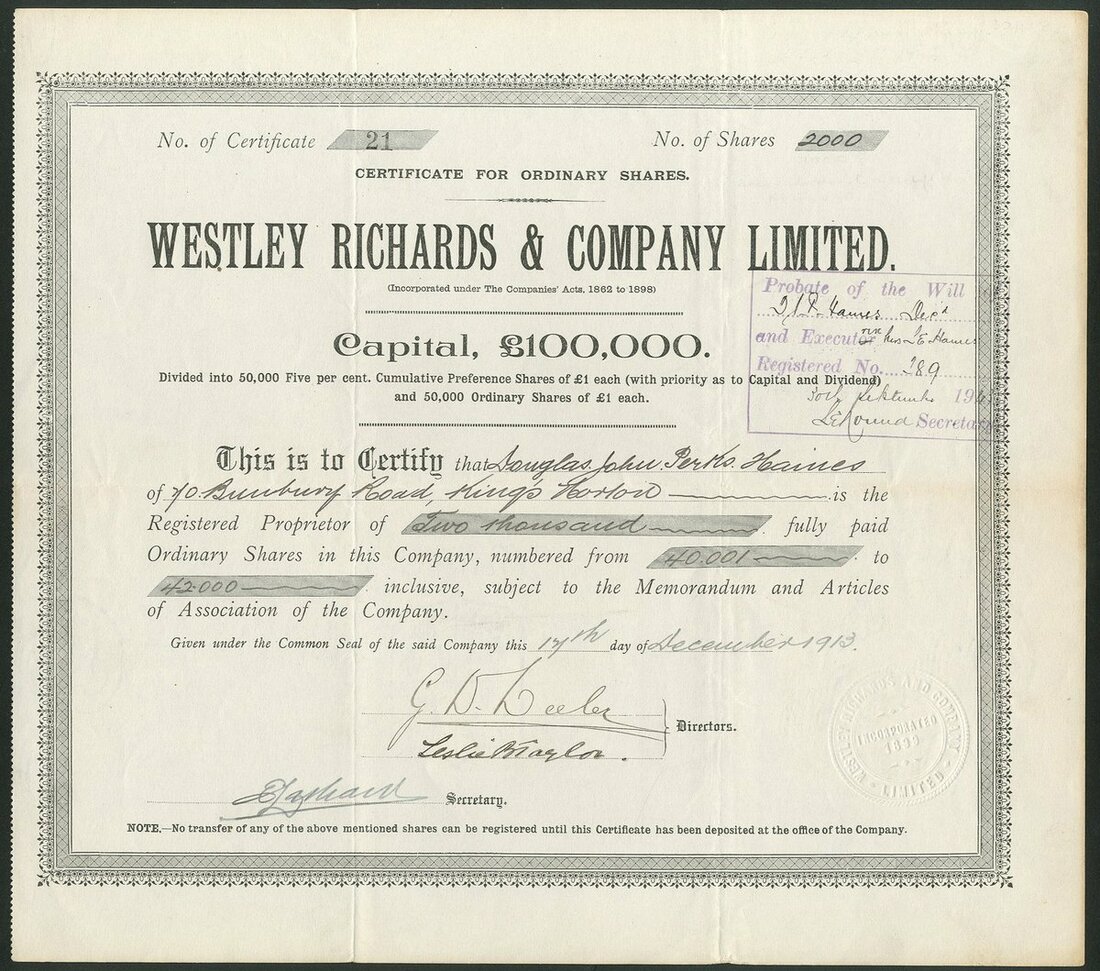 No. of Certificate 21 No. of Shares 2000
CERTIFICATE FOR ORDINARY SHARES.
WESTLEY RICHARDS & COMPANY LIMITED.
(Incorporated under The Companies' Acts, 1862 to 1898)
Probate of the Will
D.J.P. Haines Dec'd
Capital, £100,000.
and Executor Mrs Haines
Registered No. 289
Divided into 50,000 Five per cent. Cumulative Preference Shares of £1 each (with priority as to Capital and Dividend)
and 50,000 Ordinary Shares of £1 each.
30th September
Secretary
This is to Certify that Douglas John Perks Haines
of Bunbury Road, King's Norton is the
Registered Proprietor of Two thousand fully paid
Ordinary Shares in this Company, numbered from 40.001 to
42.000 inclusive, subject to the Memorandum and Articles
of Association of the Company.
Given under the Common Seal of the said Company this 17th day of December 1913.
Leslie B Taylor.
Directors.
Secretary.
WESTLEY RICHARDS AND COMPANY LIMITED
INCORPORATED
1899
NOTE.—No transfer of any of the above mentioned shares can be registered until this Certificate has been deposited at the office of the Company.